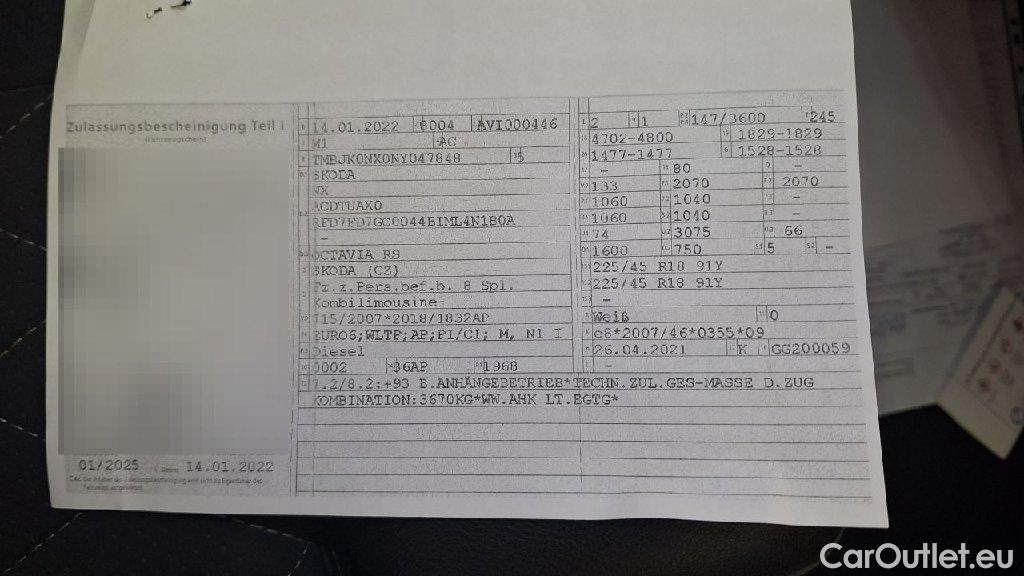 Zulassungsbescheinigung Teil I
(Fahrzeugschein)
01/2025
14.01.2022
14.01.2022 8004 AVI000446
M1 AC
TMBJK0NX0NY047848 5
SKODA
NX
ACDTUAX0
RFD7FD7GC0044BIML4N1B0A
-
OCTAVIA RS
SKODA (CZ)
Fz.z.Pers.bef.b. 8 Spl.
Kombilimousine
715/2007*2018/1832AP
EURO6;WLTP;AP;PI/CI; M, N1 I
Diesel
0002 36AP 1968
7.2/8.2:+93 B.ANHÄNGEBETRIEB*TECHN.ZUL.GES-MASSE D.ZUG
KOMBINATION:3670KG*WW.AHK LT.EGTG*
2 1 147/3600 245
4702-4800 1829-1829
1477-1477 1528-1528
- 80 -
133 2070 2070
1060 1040 -
1060 1040 -
74 3075 66
1600 750 5 -
225/45 R18 91Y
225/45 R18 91Y
-
Weiß 0
e8*2007/46*0355*09
26.04.2021 K GG200059
-
CarOutlet.eu